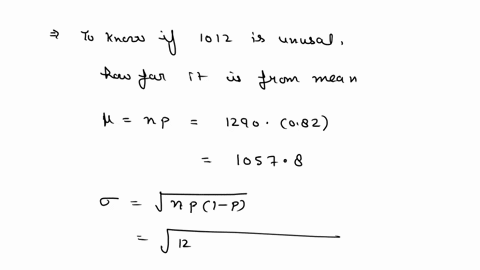 ⇒ To know if 1012 is unusal,
how far it is from mean
μ = np = 1290 · (0.82)
= 1057.8
σ = √np(1-p)
= √12